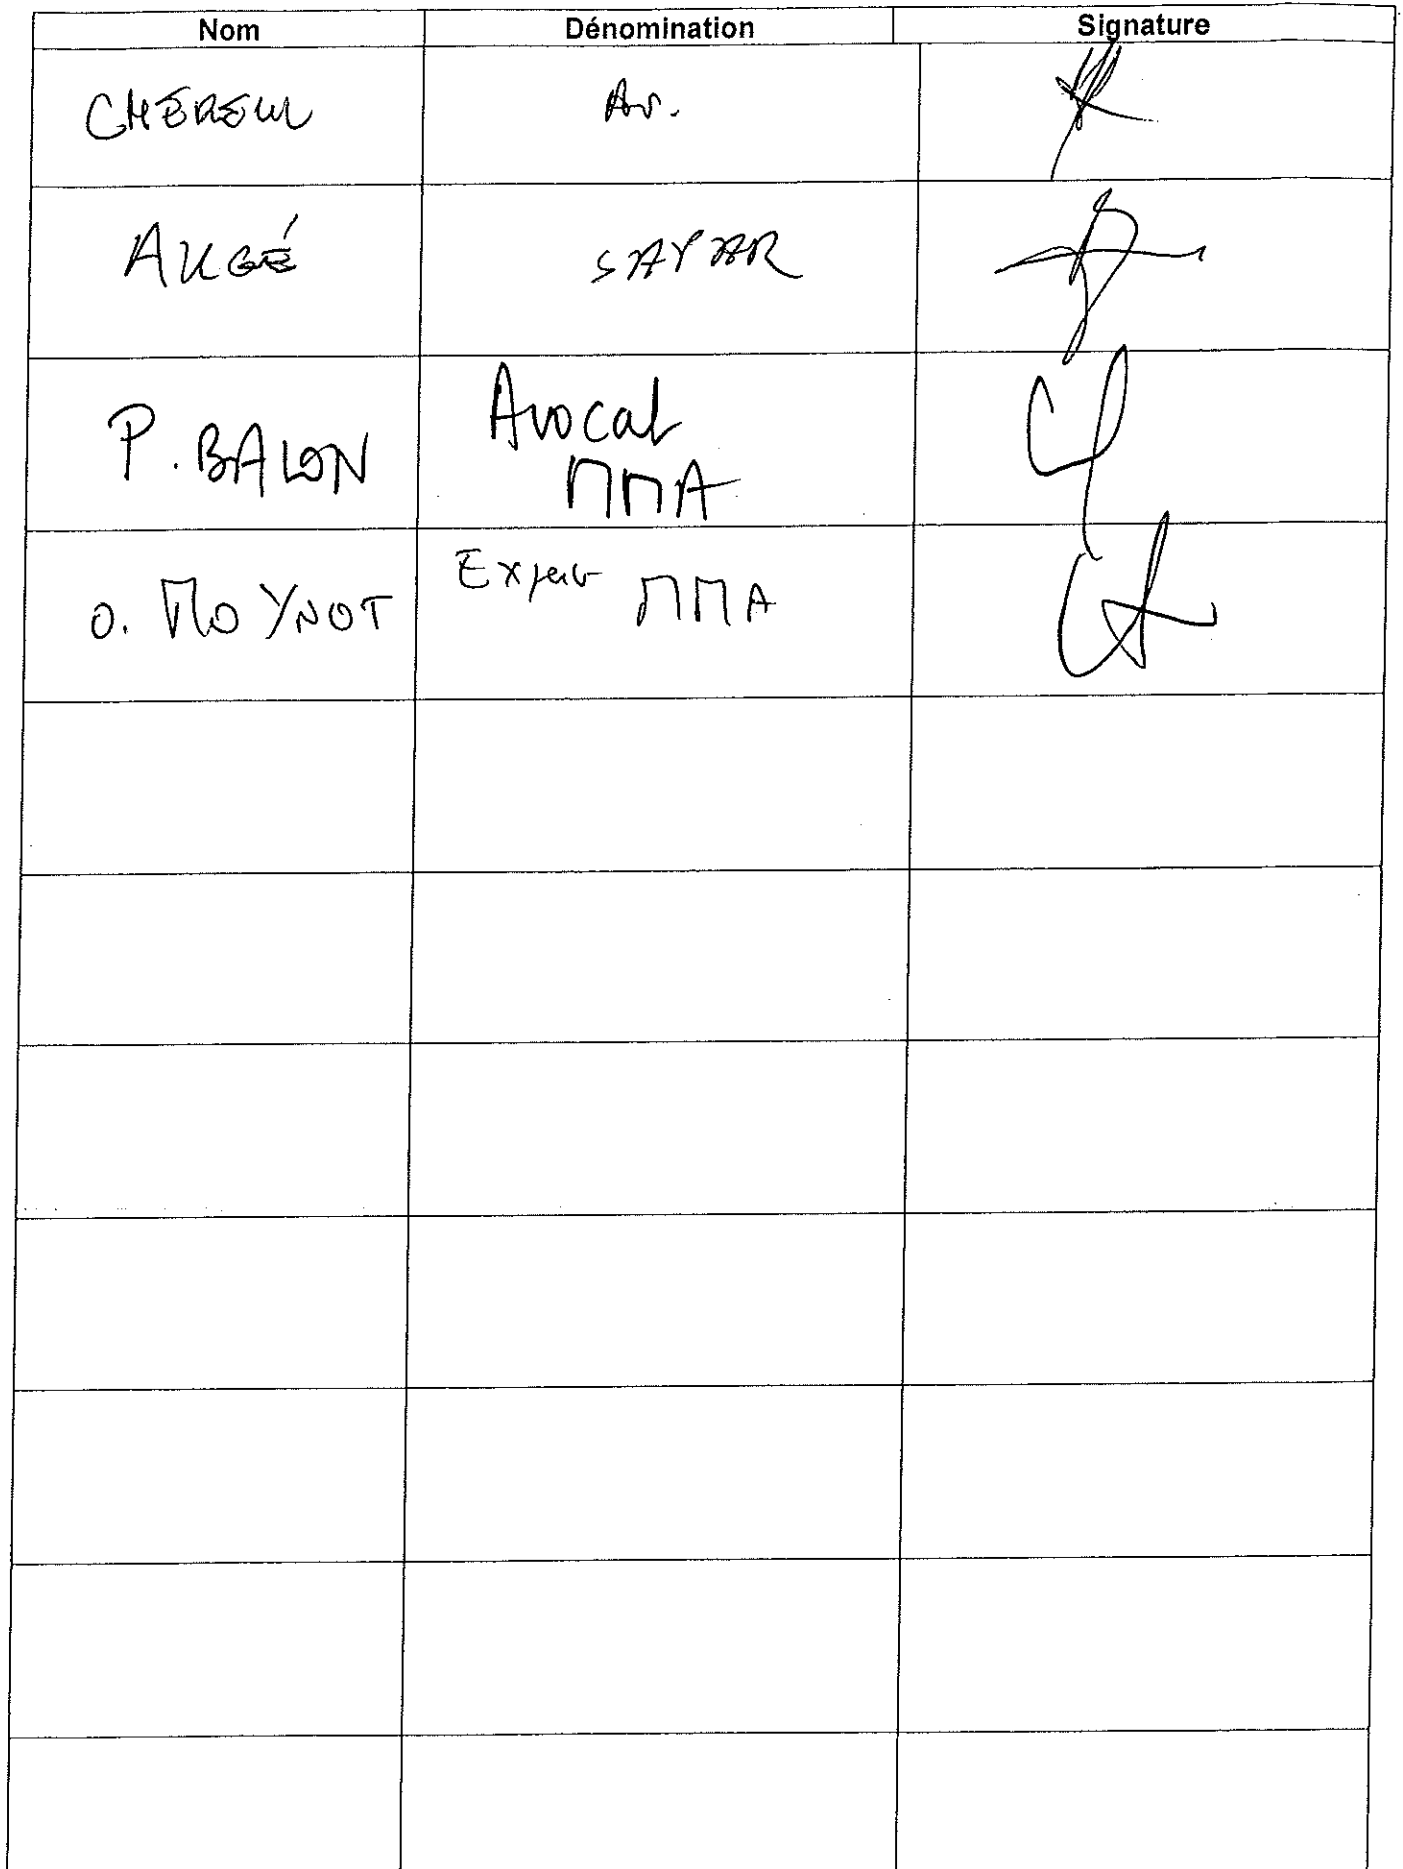 Nom Dénomination Signature
Av.
AUGÉ
P. BALON
Avocat
MMA
O. MOYNOT
Expert MMA